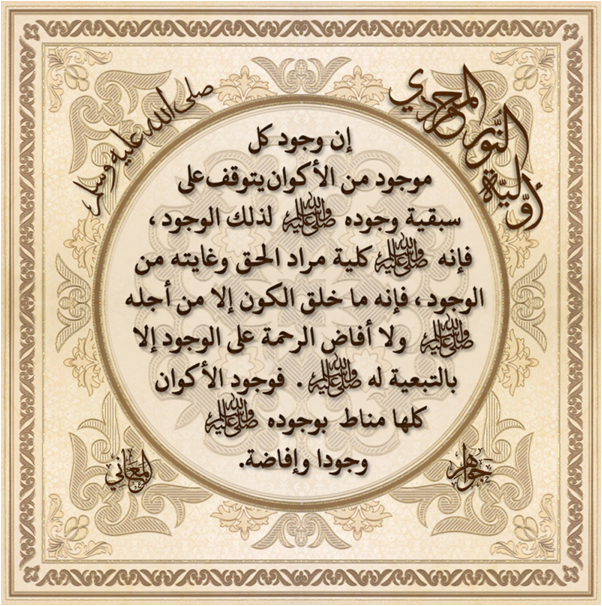 أوّليّة النُّور المحمدي
صلى الله عليه وسلم
إن وجود كل
موجود من الأكوان يتوقف على
سبقية وجوده ﷺ لذلك الوجود ،
فإنه ﷺ كلية مراد الحق وغايته من
الوجود ، فإنه ما خلق الكون إلا من أجله
ﷺ ولا أفاض الرحمة على الوجود إلا
بالتبعية له ﷺ . فوجود الأكوان
كلها مناط بوجوده ﷺ
وجودا وإفاضة.
جواهر
المعاني